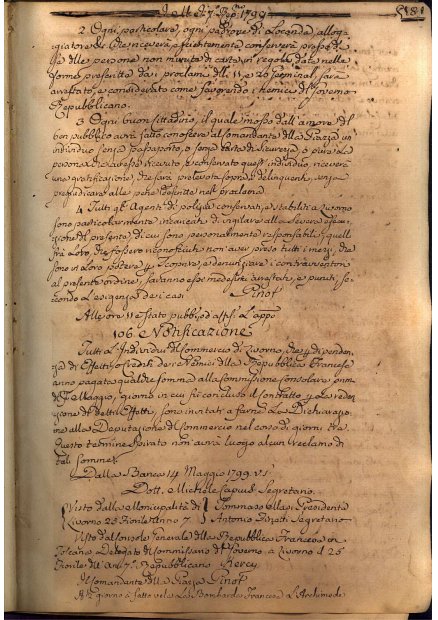 181
2 Ogni particolare, ogni Padrone di Locanda allog-
giatore che riceverà, e scientemente conserverà presso di
se delle persone non munite di carte in regola date nelle
forme prescritte dai proclami dell' 11, e 20 Germinal, sarà
arrestato, e considerato come favorendo i nemici del Governo
Repubblicano.
3 Ogni buon Cittadino, il quale mosso dall' amore del
ben pubblico avrà fatto conoscere al Comandante della Piazza un
individuo senza Passaporto, o senza Carta di Sicurezza, o pure la
persona che avesse ricevuto, e conservato quest' individuo, riceverà
una gratificazione, che sarà prelevata sopra i delinquenti, senza
pregiudicare alle pene descritte nel proclama.
4 Tutti gl' Agenti di polizia conservati, o stabiliti a Livorno
sono particolarmente incaricati di vigilare alla severa esecu-
zione del presente di cui sono personalmente responsabili, quelli
frà loro, che fossero riconosciuti non aver preso tutti i mezzi, che
sono in loro potere per scoprire, e denunziare i contravventori
al presente ordine, saranno essi medesimi arrestati, e puniti, se-
condo l' esigenza dei casi Pinot
Alle ore 11 è stato pubb:to ed aff:so l' app:o
106. Notificazione
Tutti gl' Individui del Commercio di Livorno, che per dipenden-
za di Effetti, o crediti de' Nemici della Repubblica Francese
anno pagato qualche somma alla Commissione Consolare
di Maggio, giorno in cui fù concluso il Contratto per la reden-
zione di detti Effetti, sono invitati a farne la Dichiarazio-
ne alla Deputazione del Commercio nel corso di giorni tre
Questo termine spirato non avrà luogo alcun reclamo di
tali somme.
Dalla Banca 14 Maggio 1799. v. s.
Dott. Michele Segretario.
Visto dalla Municipalità di Tommaso Presidente
Livorno 25 Fiorile Anno 7. Antonio Segretario
Visto dal Console Generale della Repubblica Francese in
Toscana, e Delegato del Commissario del Governo a Livorno il 25
Fiorile dell' An 7. Repubblicano Mercy
Il Comandante della Piazza Pinot
giorno è fatto vela la Bombarda Francese L' Archimede